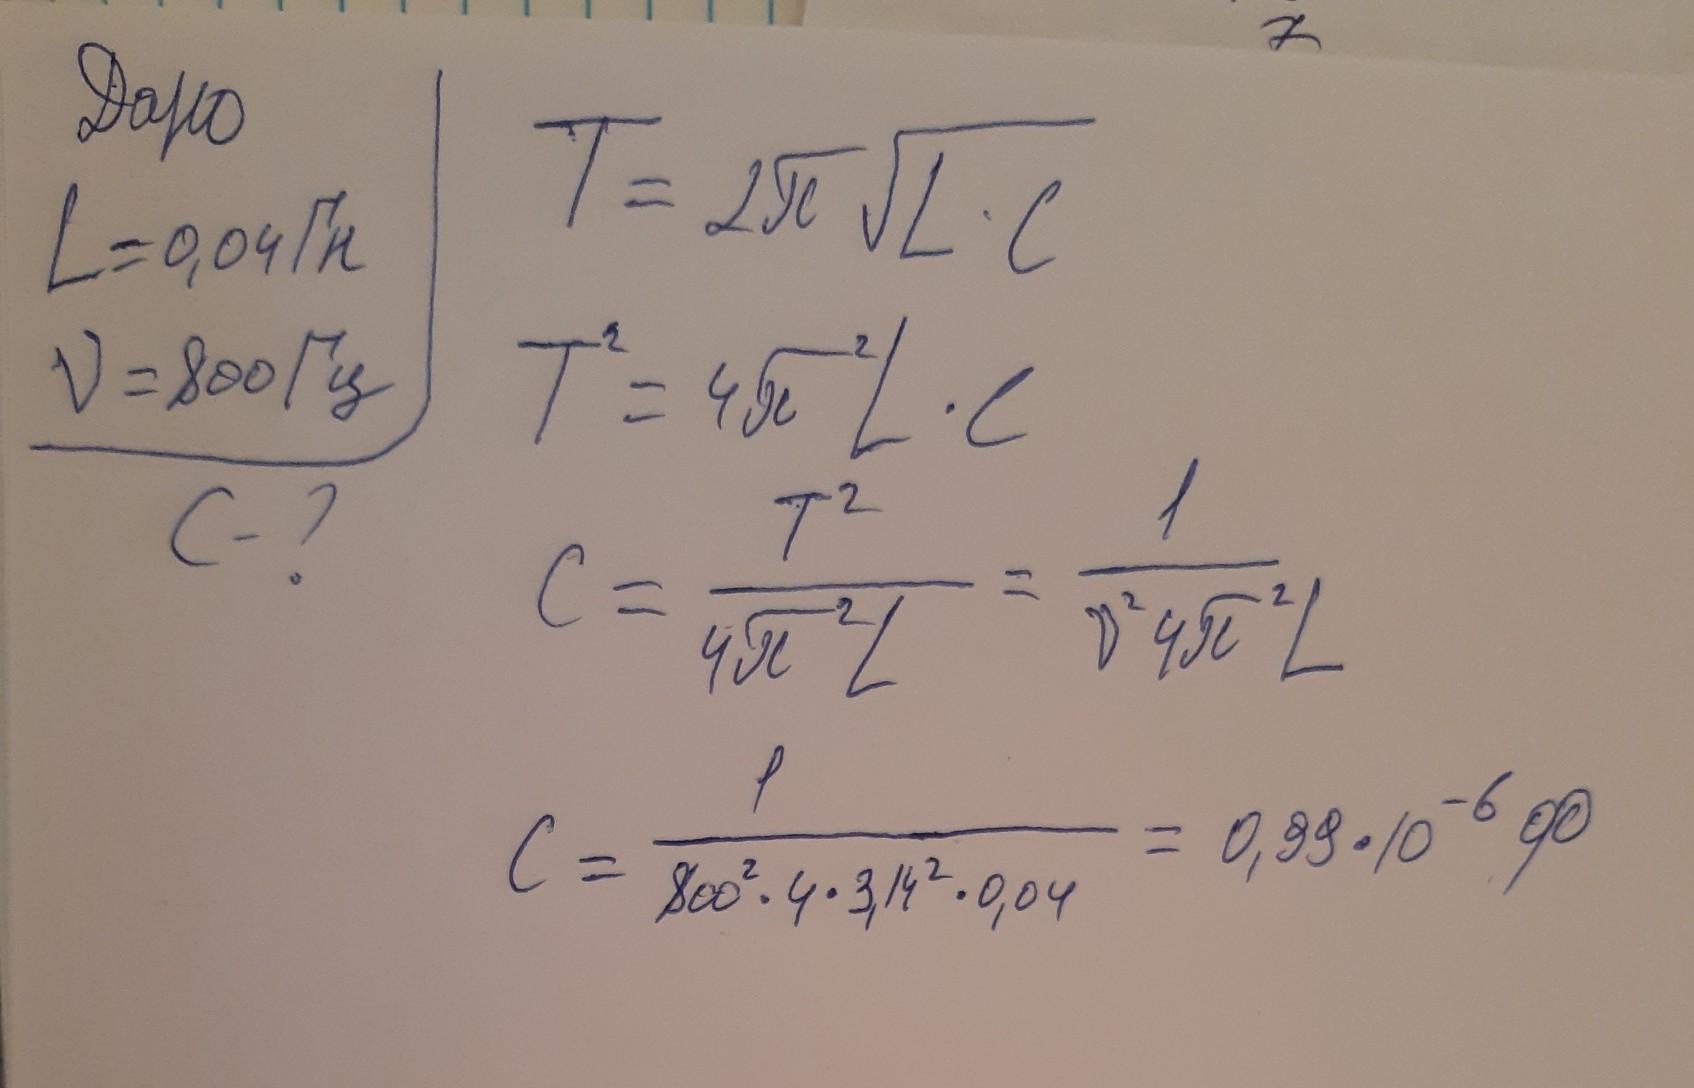 Дано
L=0,04Гн
ν=800Гц
C-?
T=2π√L·C
T²=4π²L·C
C=T²/4π²L=1/ν²4π²L
C=1/800²·4·3,14²·0,04=0,99·10⁻⁶ф